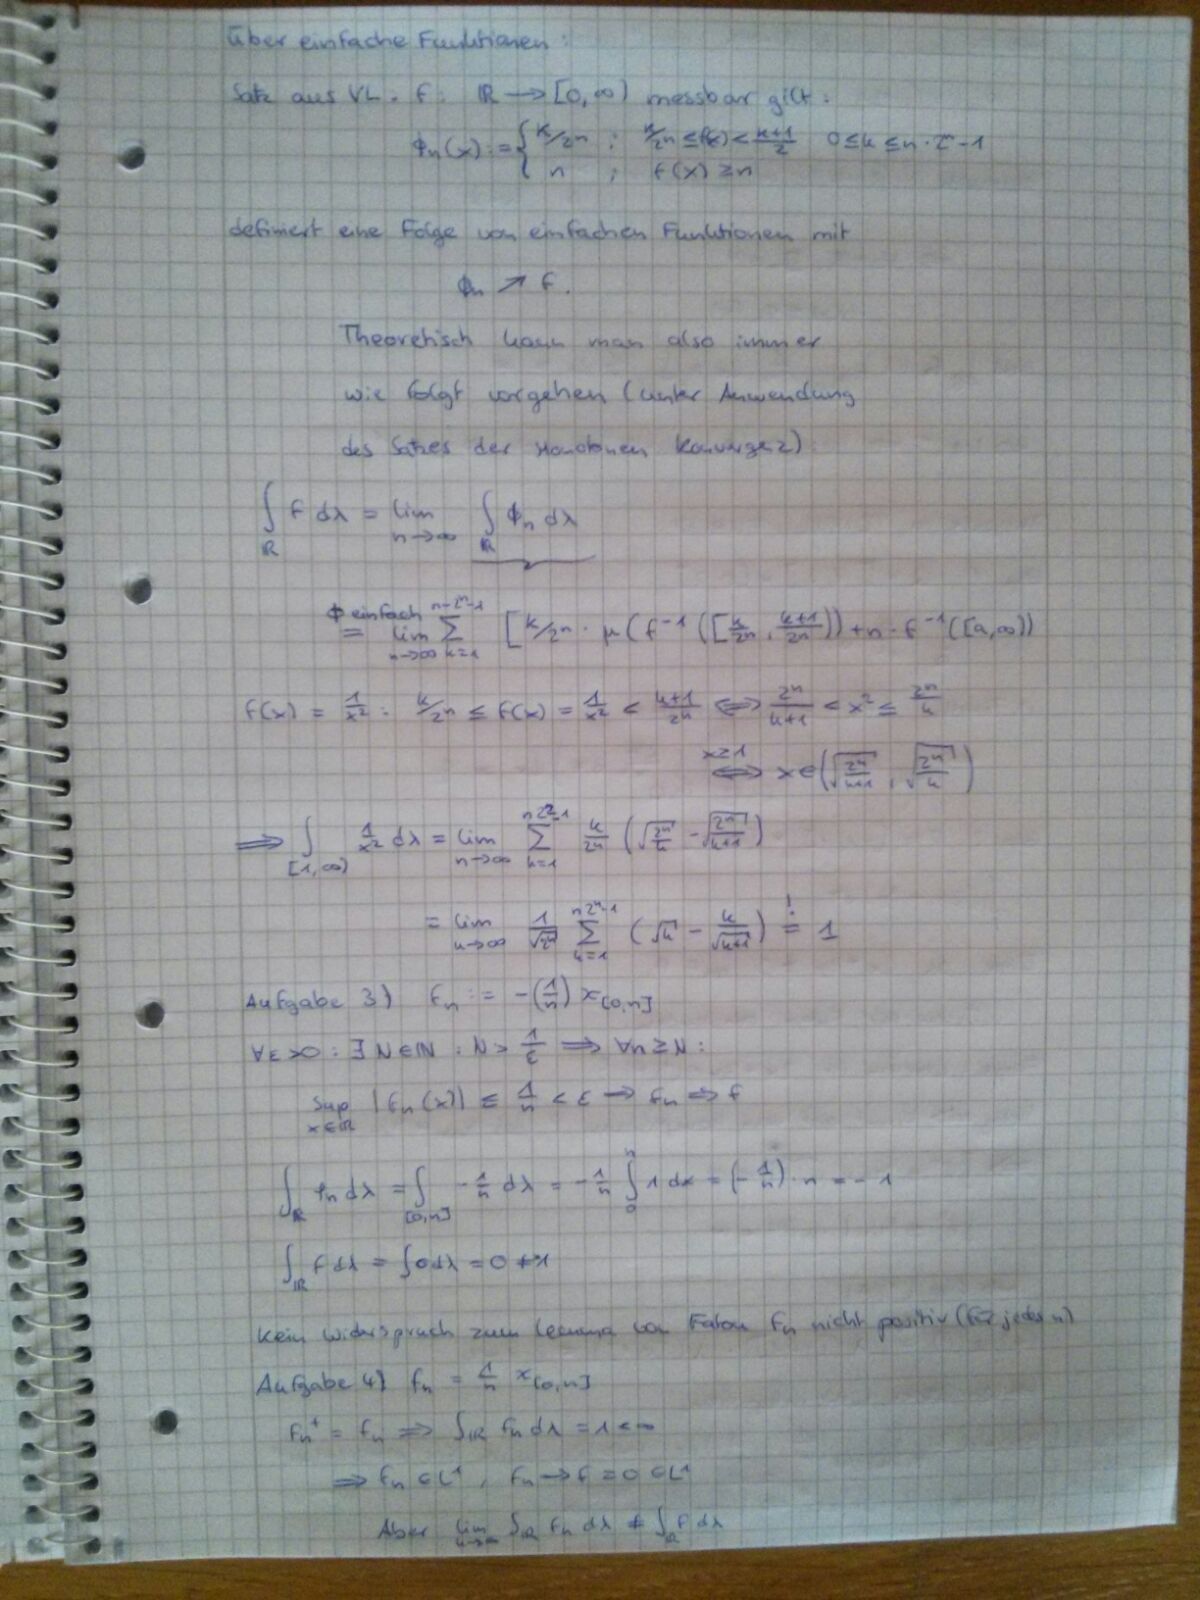 über einfache Funktionen:
Satz aus VL. f: ℝ → [0,∞) messbar gilt:
ϕn(x) := { k/2^n ; k/2^n ≤ f(x) < (k+1)/2 0 ≤ k ≤ n·2^n-1
n ; f(x) ≥ n
definiert eine Folge von einfachen Funktionen mit
ϕn ↗ f.
Theoretisch kann man also immer
wie folgt vorgehen (unter Anwendung
des Satzes der Monotonen Konvergez)
∫_ℝ f dλ = lim_{n→∞} ∫_ℝ ϕn dλ
ϕ einfach = lim_{n→∞} Σ_{k=1}^{n-2^n-1} [k/2^n · μ(f^-1([k/2^n, (k+1)/2^n)) + n · f^-1([n,∞))
f(x) = 1/x² : k/2^n ≤ f(x) = 1/x² < (k+1)/2^n ⟺ 2^n/(k+1) < x² ≤ 2^n/k
x≥1 ⟺ x ∈ (√(2^n/(k+1)), √(2^n/k))
⟹ ∫_[1,∞) 1/x² dλ = lim_{n→∞} Σ_{k=1}^{n2^n-1} k/2^n (√(2^n/k) - √(2^n/(k+1)))
= lim_{n→∞} 1/√(2^n) Σ_{k=1}^{n2^n-1} (√k - k/√(k+1)) =! 1
Aufgabe 3) fn := -(1/n) χ[0,n]
∀ε>0 : ∃ N∈ℕ : N > 1/ε ⟹ ∀n ≥ N :
sup_{x∈ℝ} |fn(x)| ≤ 1/n < ε → fn ⇒ f
∫_ℝ fn dλ = ∫_[0,n] -1/n dλ = -1/n ∫_0^n 1 dx = (-1/n)·n = -1
∫_ℝ f dλ = ∫ 0 dλ = 0 ≠ 1
Kein widerspruch zum Lemma von Fatou fn nicht positiv (für jedes n)
Aufgabe 4) fn = 1/n χ[0,n]
fn^+ = fn ⟹ ∫_ℝ fn dλ = 1 < ∞
⟹ fn ∈ L^1, fn → f = 0 ∈ L^1
Aber lim_{n→∞} ∫_ℝ fn dλ ≠ ∫_ℝ f dλ